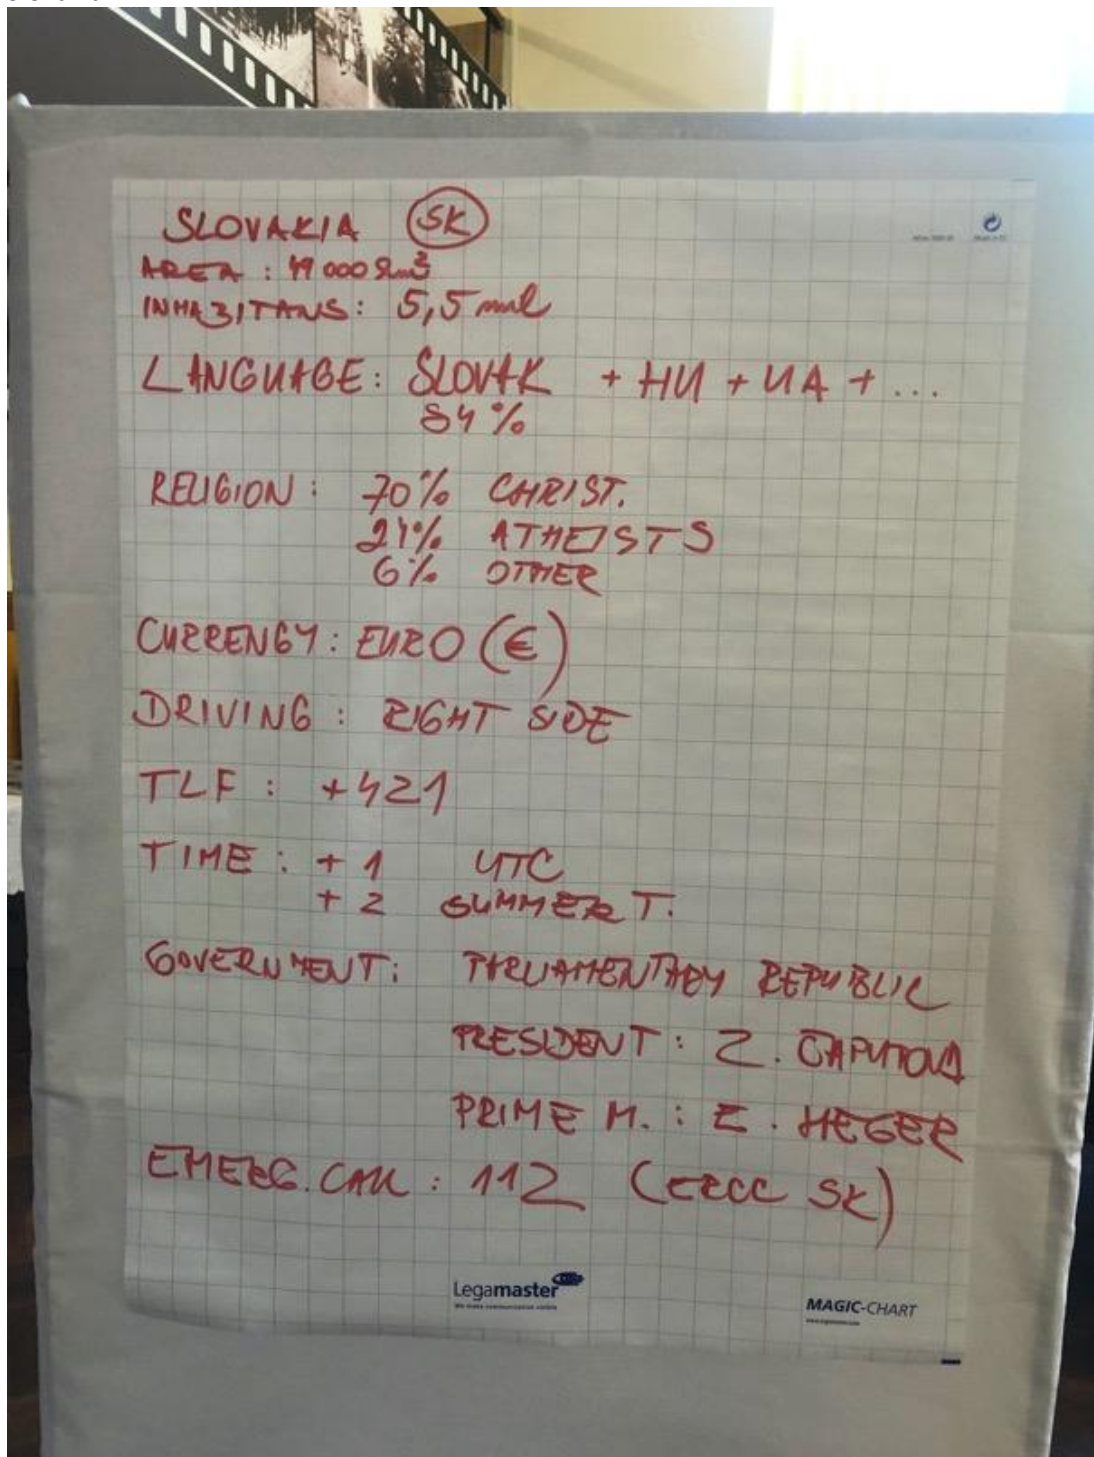 SLOVAKIA SK
AREA : 49 000 km²
INHABITANS: 5,5 mil
LANGUAGE: SLOVAK + HU + UA + ...
84%
RELIGION: 70% CHRIST.
24% ATHEISTS
6% OTHER
CURRENCY: EURO (€)
DRIVING : RIGHT SIDE
TLF : +421
TIME : +1 UTC
+2 SUMMER T.
GOVERNMENT: PARLIAMENTARY REPUBLIC
PRESIDENT : Z. ČAPUTOVA
PRIME M. : E. HEGER
EMERG. CALL : 112 (ERCC SK)
Legamaster
We make communication visible
MAGIC-CHART